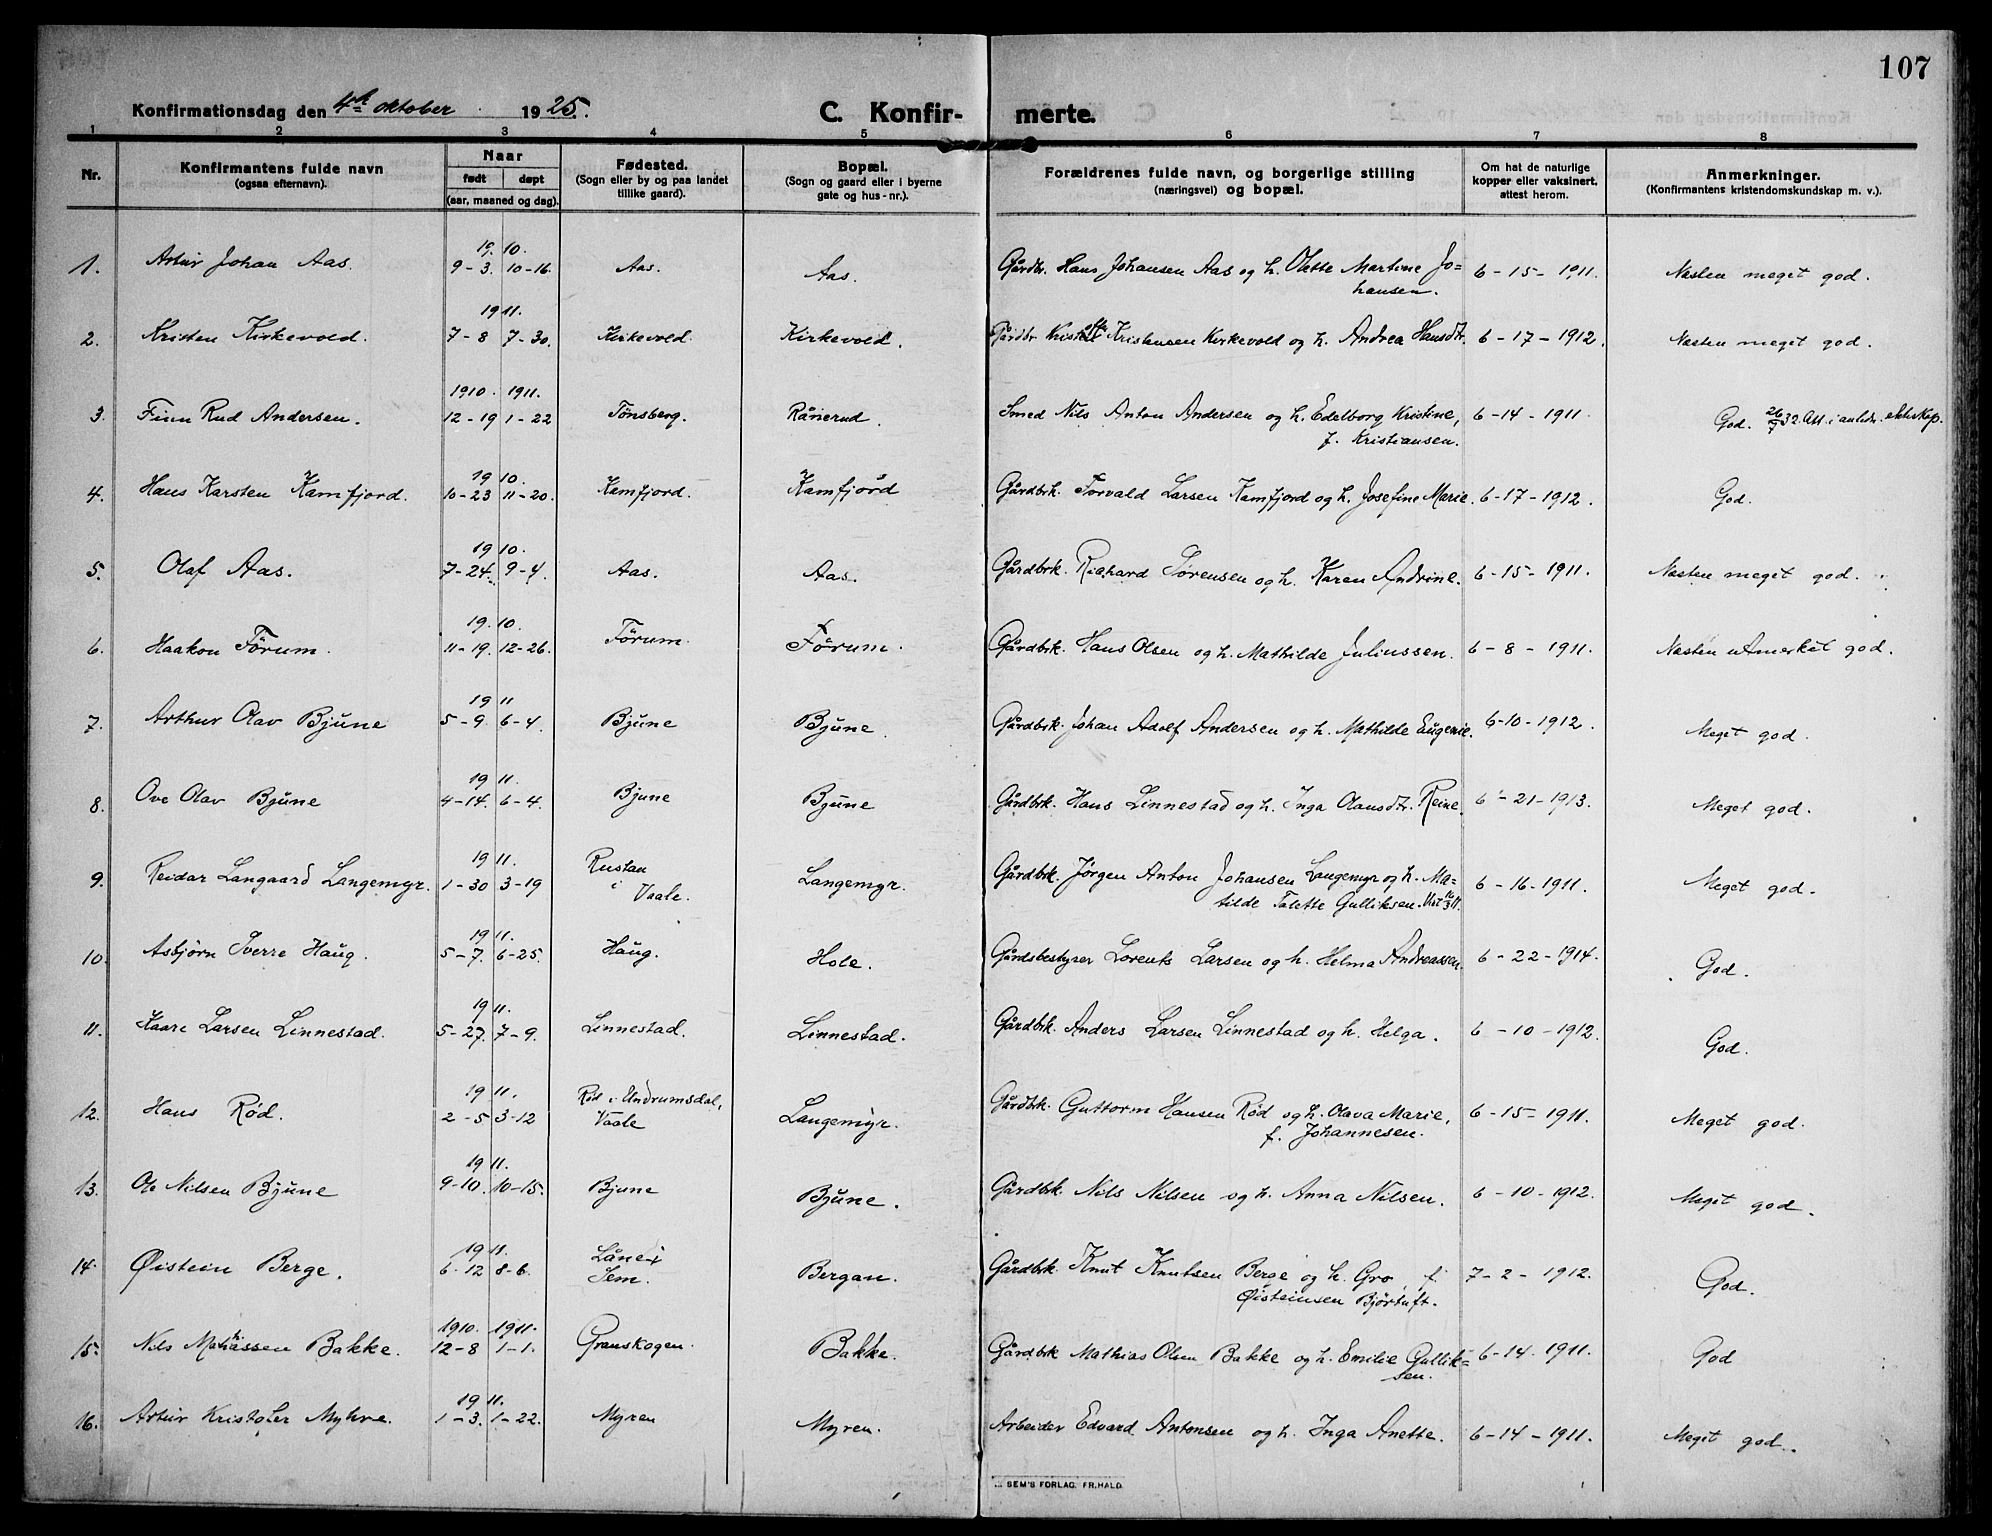 107
Konfirmationsdag den 4de oktober 1925.
C. Konfir- merte.
1 2 3 4 5 6 7 8
Nr.
Konfirmantens fulde navn
(ogsaa efternavn).
Naar
født døpt
(aar, maaned og dag).
Fødested.
(Sogn eller by og paa landet
tillike gaard).
Bopæl.
(Sogn og gaard eller i byerne
gate og hus-nr.).
Forældrenes fulde navn, og borgerlige stilling
(næringsvei) og bopæl.
Om hat de naturlige
kopper eller vaksinert,
attest herom.
Anmerkninger.
(Konfirmantens kristendomskundskap m. v.).
19 10.
1. Artur Johan Aas. 9-3. 10-16. Aas. Aas. Gårdbr. Hans Johansen Aas og h. Olette Martine Jo= 6-15-1911. Næsten meget god.
hansen.
19 11.
2. Kristen Kirkevold. 7-8 7-30. Kirkevold. Kirkevold. Gårdbr. Kristoffer Kristensen Kirkevold og h. Andrea Hansdtr. 6-17-1912. Næsten meget god.
1910. 1911.
3. Finn Rud Andersen. 12-19 1-22 Tønsberg. Rånerud. Smed Nils Anton Andersen og h. Edelborg Kristine, 6-14-1911. God. 26/7 32. Att. i anledn. ekteskap.
f. Kristiansen.
19 10.
4. Hans Karsten Kamfjord. 10-23 11-20. Kamfjord. Kamfjord Gårdbrk. Torvald Larsen Kamfjord og h. Josefine Marie. 6-17-1912. God.
19 10.
5. Olaf Aas. 7-24. 9-4. Aas. Aas. Gårdbrk. Richard Sørensen og h. Karen Andrine. 6-15-1911. Næsten meget god.
19. 10.
6. Haakon Förum. 11-19. 12-26. Förum. Förum. Gårdbrk. Hans Olsen og h. Mathilde Juliussen. 6-8-1911. Næsten utmerket god.
19 11
7. Arthur Olav Bjune 5-9. 6-4. Bjune Bjune. Gårdbrk. Johan Adolf Andersen og h. Mathilde Eugenie. 6-10-1912. Meget god.
19 11.
8. Ove Olav Bjune 4-14. 6-4. Bjune Bjune Gårdbrk. Hans Linnestad og h. Inga Olausdtr. Reine. 6-21-1913. Meget god.
19 11.
9. Reidar Langaard Langemyr. 1-30 3-19 Rustan i Vaale. Langemyr. Gårdbrk. Jørgen Anton Johansen Langemyr og h. Ma= 6-16-1911. Meget god.
tilde Talette Gulliksen.
19 11.
10. Asbjørn Sverre Haug. 5-7. 6-25. Haug. Hole. Gårdsbestyrer Lorents Larsen og h. Helma Andreassen. 6-22-1914. God.
19 11.
11. Kaare Larsen Linnestad. 5-27. 7-9. Linnestad. Linnestad. Gårdbrk. Anders Larsen Linnestad og h. Helga. 6-10-1912. God.
19 11.
12. Hans Rød. 2-5 3-12 Rød i Undrumsdal, Vaale Langemyr. Gårdbrk. Guttorm Hansen Rød og h. Olava Marie, 6-15-1911. Meget god.
f. Johannesen.
19 11.
13. Ole Nilsen Bjune 9-10. 10-15. Bjune Bjune. Gårdbrk. Nils Nilsen og h. Anna Nilsen. 6-10-1912. Meget god.
19 11.
14. Øistein Berge. 6-12 8-6. Låne i Sem. Bergan. Gårdbrk. Knut Knutsen Berge og h. Gro, f. 7-2-1912. God.
Øisteinsen Björtuft.
1910. 1911.
15. Nils Mathiassen Bakke. 12-8 1-1. Granskogen. Bakke. Gårdbrk Mathias Olsen Bakke og h. Emilie Gullik= 6-14-1911. God
sen.
19 11.
16. Artur Kristofer Myhre. 1-3. 1-22. Myren Myren. Arbeider Edvard Antonsen og h. Inga Anette. 6-14-1911. Meget god.
SEM'S FORLAG, FR.HALD